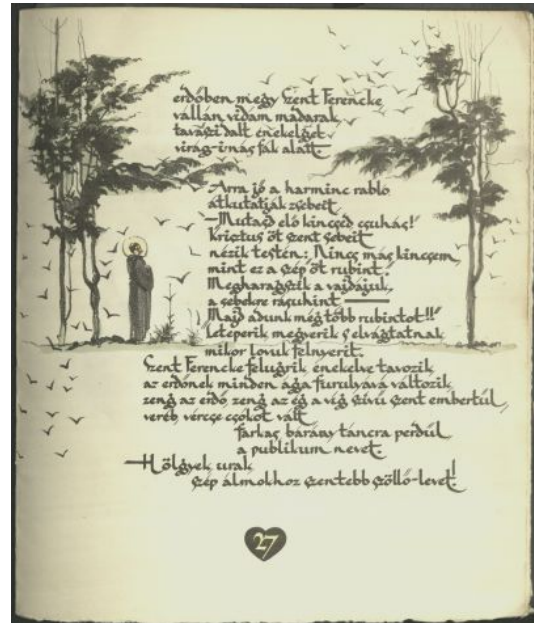 erdőben megy Szent Ferencke
vállán vidám madarak
tavaszi dalt énekelget
virág-imás fák alatt.
Arra jő a harminc rabló
átkutatják zsebeit
—Mutasd elő kincsed csuhás!
Krisztus öt szent sebeit
nézik testén: Nincs más kincsem
mint ez a szép öt rubint.
Megharagszik a vajdájuk,
a sebekre rásuhint —
Majd adunk még több rubintot!!"
Leteperik megverik s elvágtatnak
mikor lovuk felnyerit.
Szent Ferencke felugrik énekelve távozik
az erdőnek minden ága furulyává változik
zeng az erdő, zeng az ég a víg szívű szent embertül,
veréb, vércse csókot vált
farkas bárány táncra perdül
a publikum nevet.
—Hölgyek urak
szép álmokhoz szentebb szöllő-levet!
27